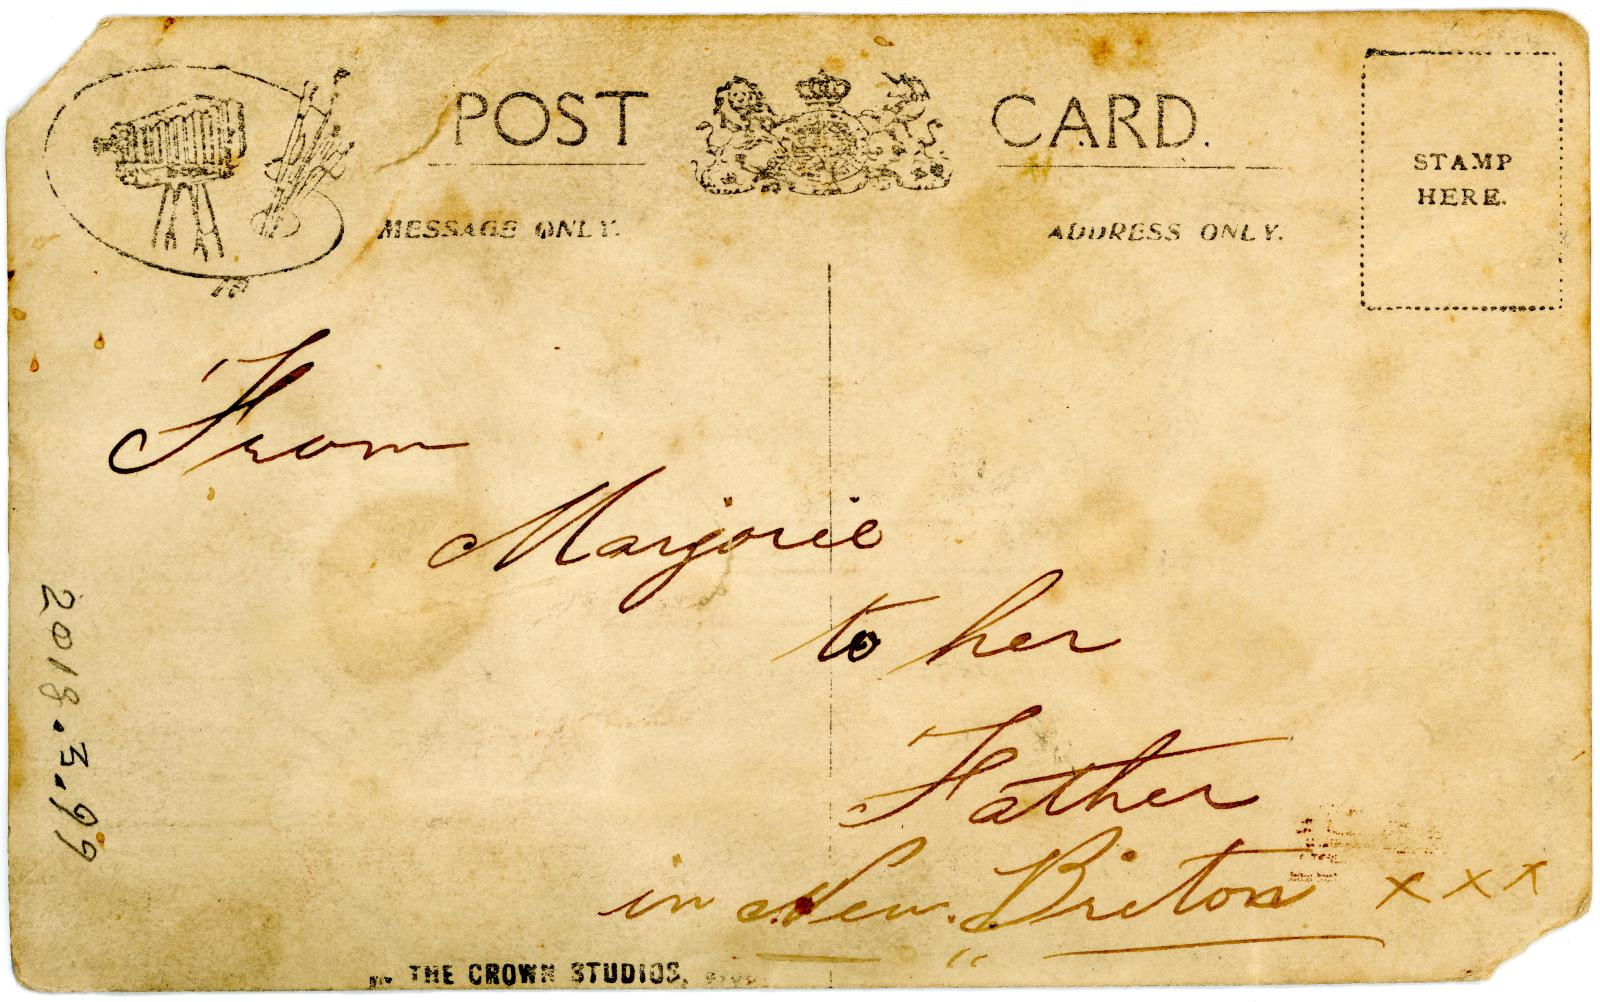 POST CARD.
MESSAGE ONLY.
ADDRESS ONLY.
STAMP
HERE.
From
Marjorie
to her
Father
in New. Briton x x x
THE CROWN STUDIOS,
2018.3.99